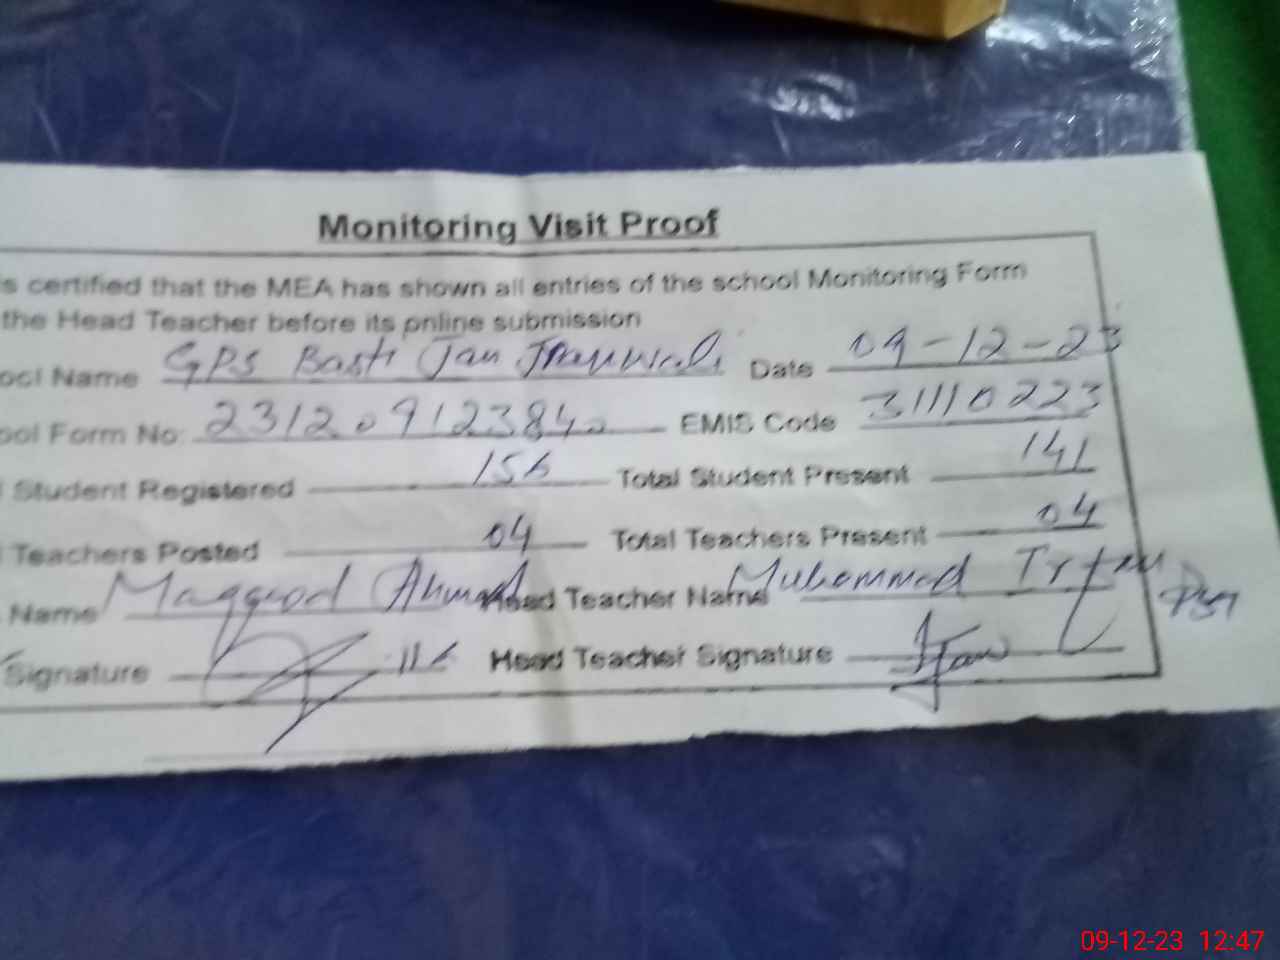 Monitoring Visit Proof
s certified that the MEA has shown all entries of the school Monitoring Form
the Head Teacher before its online submission
ool Name GPS Basti Jan Date 09-12-23
ool Form No: 231209123840 EMIS Code 31110223
l Student Registered 156 Total Student Present 141
l Teachers Posted 04 Total Teachers Present 04
Name Maqqsod Ahmed Head Teacher Name Muhammad Irfan
PST
Signature 116 Head Teacher Signature
09-12-23 12:47